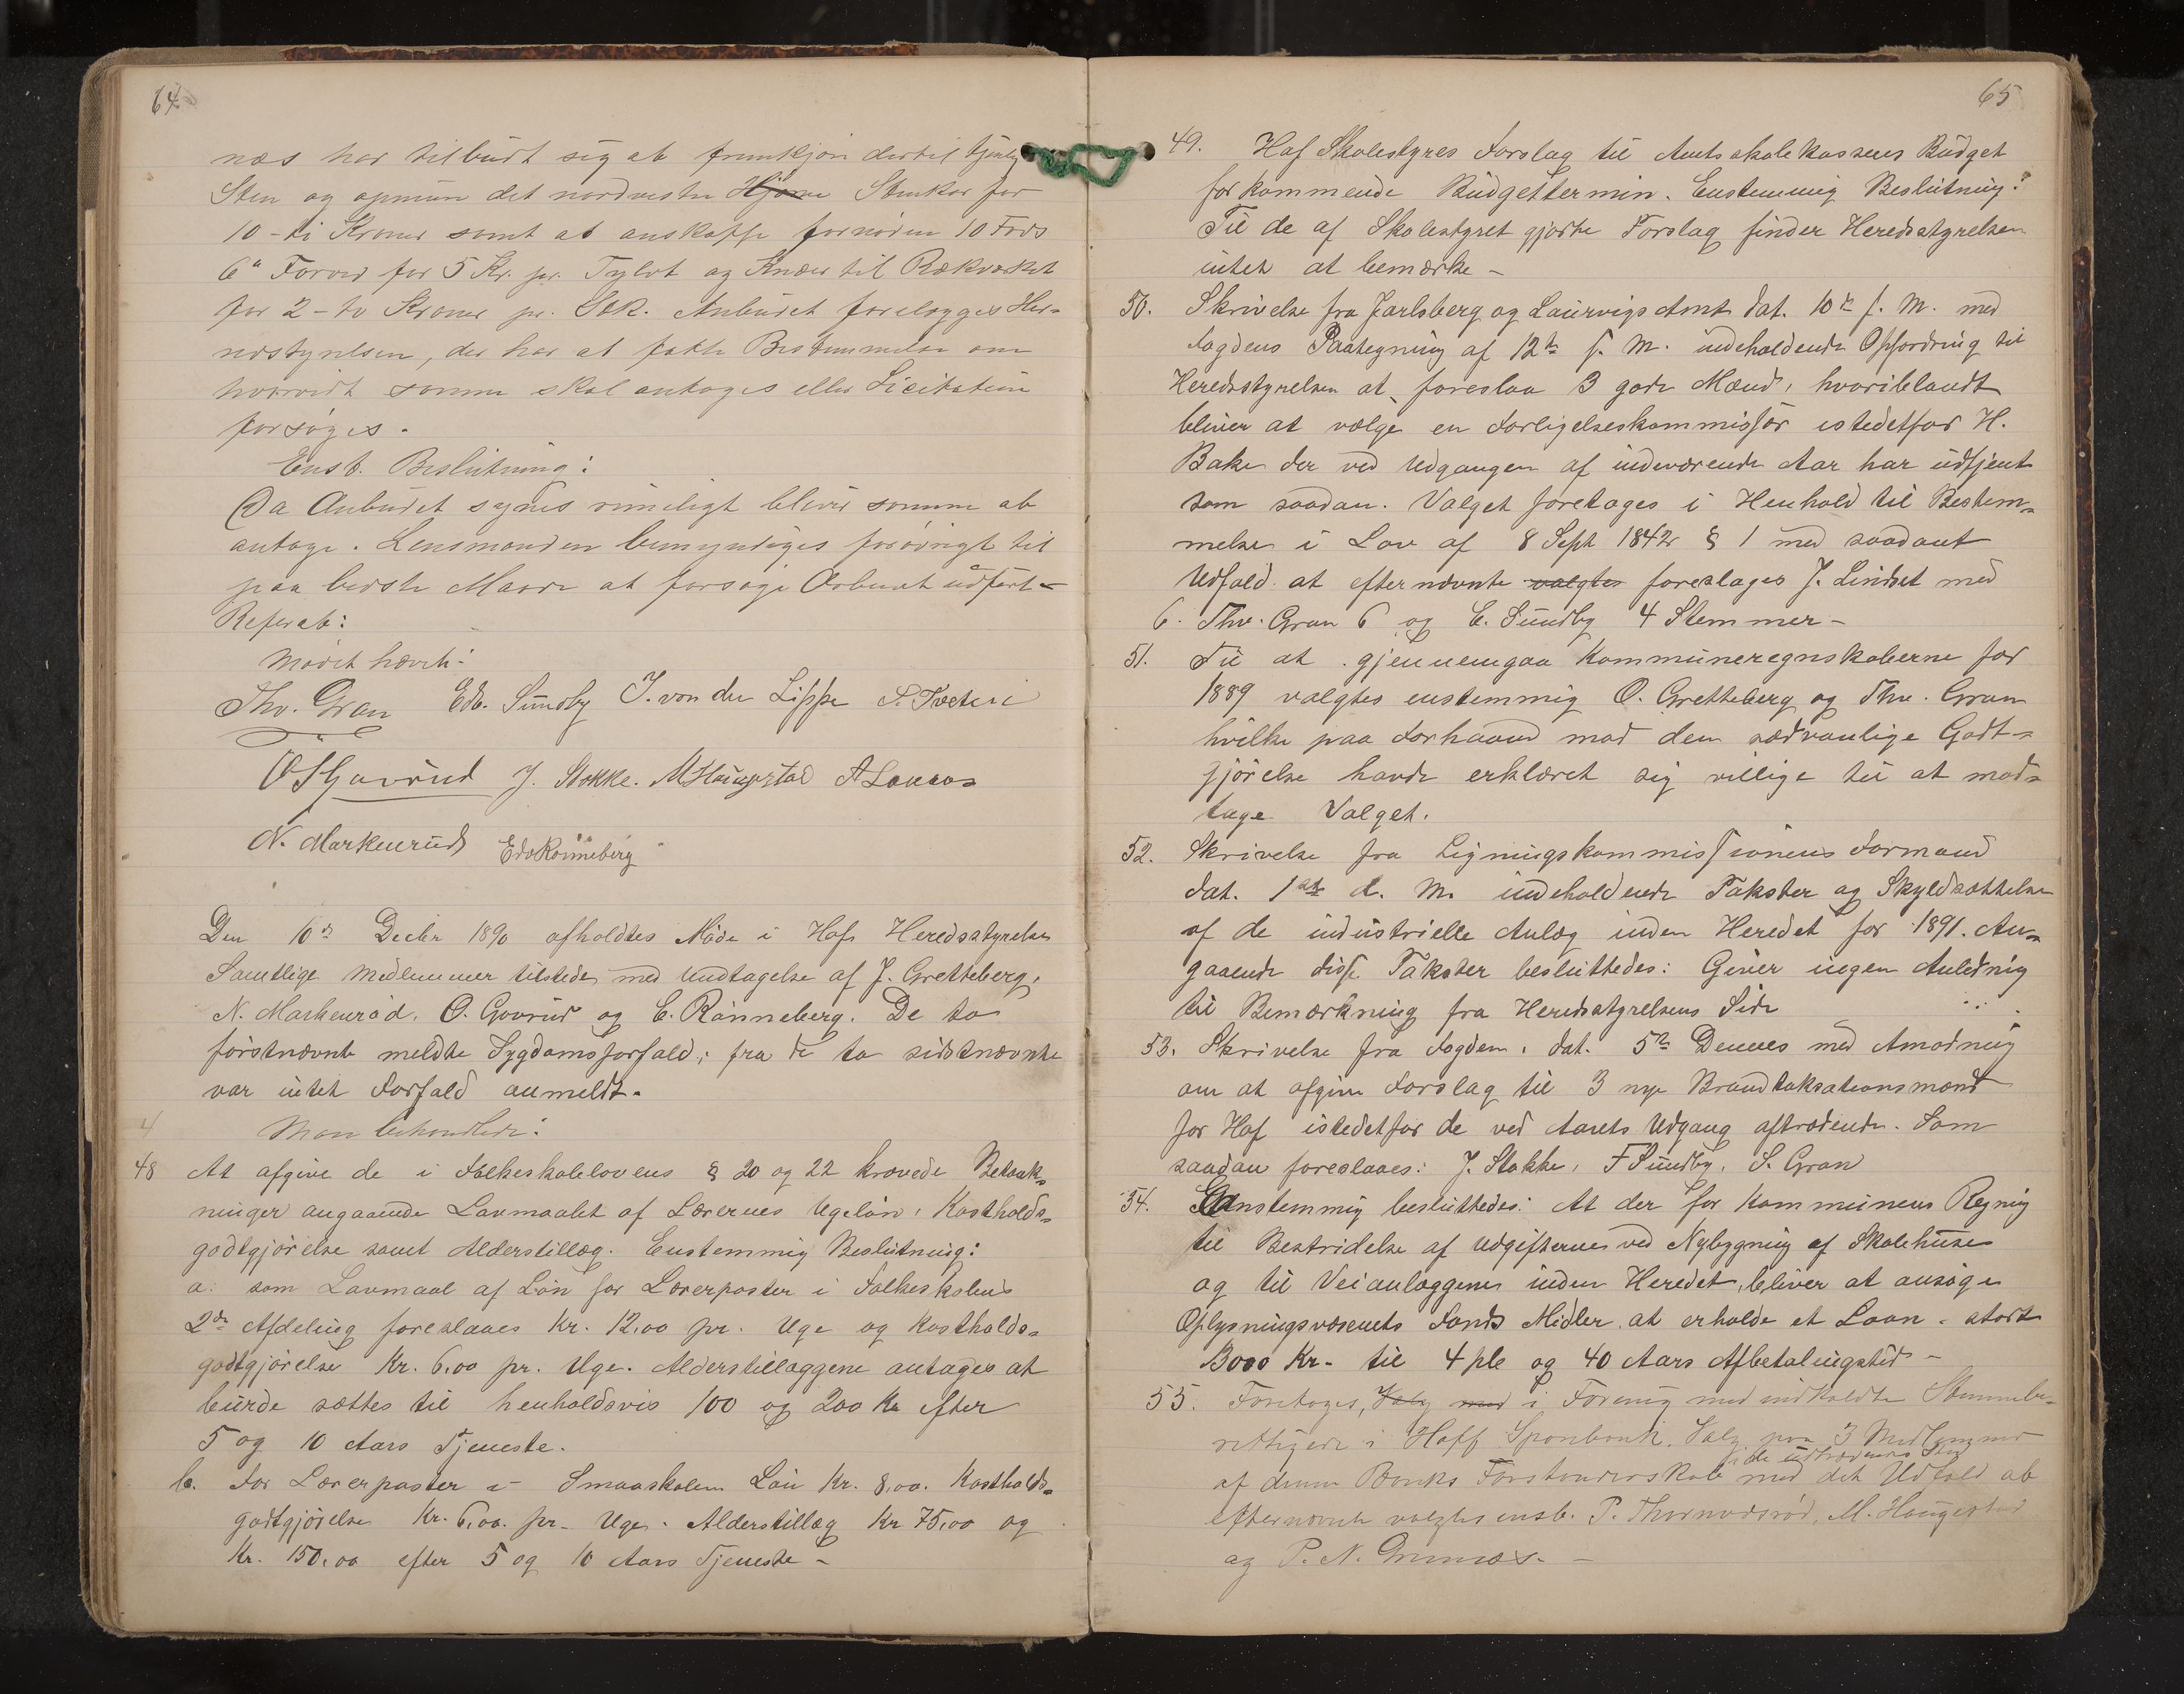 64
næs har tilbudt sig at fremkjøre dertil tjenlig
Sten og opmure det nordvestre Hjørne Stenkar for
10 - ti Kroner samt at anskaffe fornøden 10 Fods
6" Forved for 5 Kr. pr. Tylvt og Knæer til Rækværket
for 2 - to Kroner pr. Stk. Anbudet forelægges Her-
redstyrelsen, der har at fatte Bestemmelse om
hvorvidt samme skal antages eller Licitation
forsøges.
Enst. Beslutning:
Da Anbudet synes rimeligt bliver samme at
antage. Lensmanden bemyndiges forøvrigt til
paa bedste Maade at forsøge Arbeidet udført -
Referat:
Mødet hævet:
Thv. Gran Edv. Sundby J. von der Lippe S. Tveten
O Govrud J. Stokke. M Haugestad A Lauaas
N. Markerud Edv Rønneberg
Den 10de Decbr 1890 afholdtes Møde i Hofs Heredsstyrelse
Samtlige Medlemmer tilstede med Undtagelse af J. Gretteberg,
N. Markerød, O. Govrud og E. Rønneberg. De to
førstnævnte meldte Sygdomsforfald; fra de to sidstnævnte
var intet Forfald anmeldt.
Man behandlede:
48 At afgive de i Folkeskolelovens § 20 og 22 krævede Betænk-
ninger angaaende Lavmaalet af Lærernes Ugeløn, Kostholds-
godtgjørelse samt Alderstillæg. Enstemmig Beslutning:
a. som Lavmaal af Løn for Lærerposter i Folkeskolens
2den Afdeling foreslaaes Kr. 12,00 pr. Uge og Kostholds-
godtgjørelse Kr. 6,00 pr. Uge. Alderstillæggene antages at
burde sættes til henholdsvis 100 og 200 Kr efter
5 og 10 Aars Tjeneste.
b. For Lærerposter i Smaaskolen Løn Kr. 8,00. Kostholds-
godtgjørelse Kr. 6,00 pr. Uge. Alderstillæg Kr 75,00 og
Kr. 150,00 efter 5 og 10 Aars Tjeneste -
65
49. Hof Skolestyres Forslag til Amtsskolekassens Budget
for kommende Budgettermin. Enstemmig Beslutning:
Til de af Skolestyret gjorte Forslag finder Heredsstyrelsen
intet at bemærke -
50. Skrivelse fra Jarlsberg og Laurvigs Amt dat. 10de f. M. med
Fogdens Paategning af 12te f. M. indeholdende Opfordring til
Heredsstyrelsen at foreslaa 3 gode Mænd, hvoriblandt
bliver at vælge en Forligelseskommissør istedetfor H.
Bakke der ved Udgangen af indeværende Aar har udtjent
som saadan. Valget foretages i Henhold til Bestem-
melse i Lov af 8 Sept 1842 § 1 med saadant
Udfald at efternævnte valgtes foreslages J. Lindset med
6. Thv. Gran 6 og E. Sundby 4 Stemmer -
51. Til at gjennemgaa Kommuneregnskaberne for
1889 valgtes enstemmig O. Gretteberg og Thv. Gran
hvilke paa Forhaand mod den sædvanlige Godt-
gjørelse havde erklæret sig villige til at mod-
tage Valget.
52. Skrivelse fra Ligningskommissionens Formand
dat. 1ste d. M. indeholdende Takster og Skyldsættelse
af de industrielle Anlæg inden Heredet for 1891. An-
gaaende disse Takster besluttedes: Giver ingen Anledning
til Bemærkning fra Heredsstyrelsens Side
53. Skrivelse fra Fogden, dat. 5te Dennes med Anmodning
om at afgive Forslag til 3 nye Brandtaksationsmænd
for Hof istedetfor de ved Aarets Udgang aftrædende. Som
saadan foreslaaes: J. Stokke, F Sundby, S. Gran
54. Enstemmig besluttedes: At der for Kommunens Regning
til Bestridelse af Udgifterne ved Nybygning af Skolehuse
og til Veianlæggene inden Heredet, bliver at ansøge
Oplysningsvæsenets Fonds Midler at erholde et Laan - stort
3000 Kr - til 4 pCt og 40 Aars Afbetalingstid -
55. Foretoges, Valg med i Forening med indkaldte Stemmebe-
rettigede i Hoff Sparebank, Valg paa 3 Medlemmer
i de udtrædendes Sted
af denne Banks Forstanderskab med det Udfald at
efternævnte valgtes enst. P. Thormodsrød, M. Haugestad
og P. N. Grennæs. -